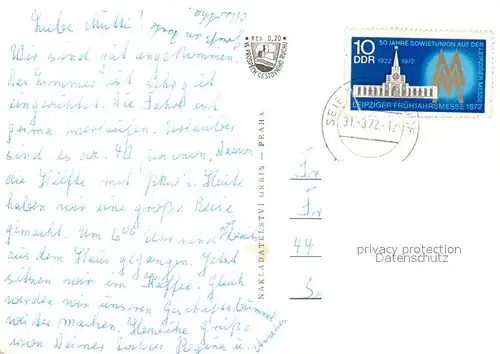 Liebe Mutti!
Wir sind gut angekommen.
Das Zimmer ist sehr gut
eingerichtet. Die Fahrt ist
prima verlaufen. Urlauber
sind es ca. 40 Personen, davon
die Hälfte mit PKW's. Heute
haben wir eine große Reise
gemacht. Um 6 Uhr sind wir
aus dem Haus gegangen. Jetzt
sitzen wir im Kaffee. Gleich
werden wir unseren Geschäftsbummel
weiter machen. Herzliche Grüße
von Deiner Tochter Regina u.
Kčs 0,20
VI. PROSPĚCH CESTOVNÍHO RUCHU
NAKLADATELSTVÍ ORBIS - PRAHA
10
DDR
50 JAHRE SOWJETUNION AUF DER
LEIPZIGER MESSE
1922 1972
LEIPZIGER FRÜHJAHRSMESSE 1972
SEIF
31.-3.72.-12
Fr
Fr
44
S
privacy protection
Datenschutz